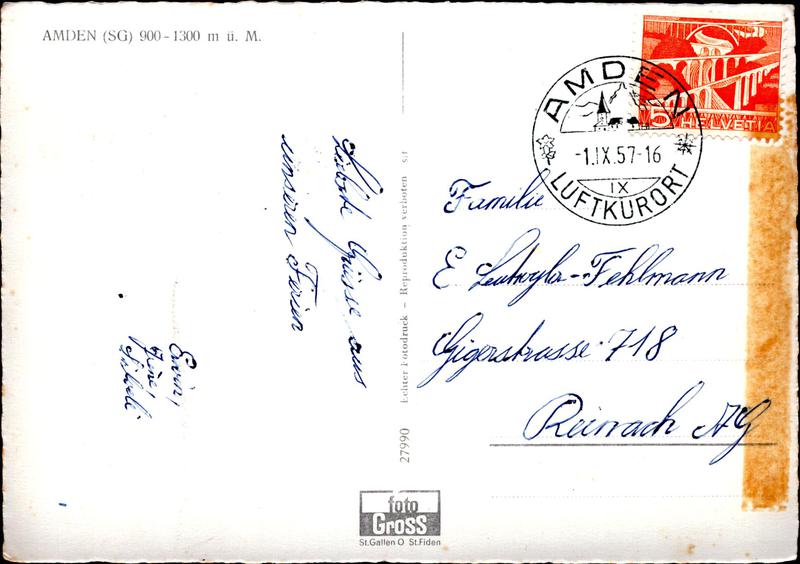 AMDEN (SG) 900-1300 m ü. M.
Liebste Grüsse aus
unseren Ferien
Erwin,
27990 Echter Fotodruck – Reproduktion verboten s.f
foto
Gross
St.Gallen O St.Fiden
5 HELVETIA
AMDEN
-1.IX.57-16
IX
LUFTKURORT
Familie
E. Leutwyler-Fehlmann
Gigerstrasse 718
Reinach AG